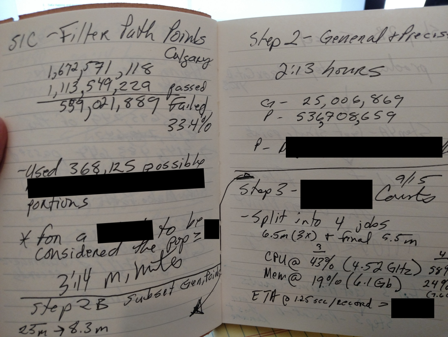 SIC - Filter Path Points
Calgary
1,672,571,118
1,113,549,229 passed
559,021,889 Failed
33.4%
- Used 368,125 possible
portions
* for a to be
considered the pop ≥
3:14 minutes
Step 2B Subset Gen,
25m → 8.3m
Step 2 - General + Precis
2:13 hours
G - 25,006,869
P - 536,708,659
P -
Step 3 - 9/15
Counts
- Split into 4 jobs
6.5m (3x) + final 5.5m
3
CPU @ 43% (4.52 GHz)
Mem @ 19% (6.1Gb) 24%
ETA @ 125 sec/record =